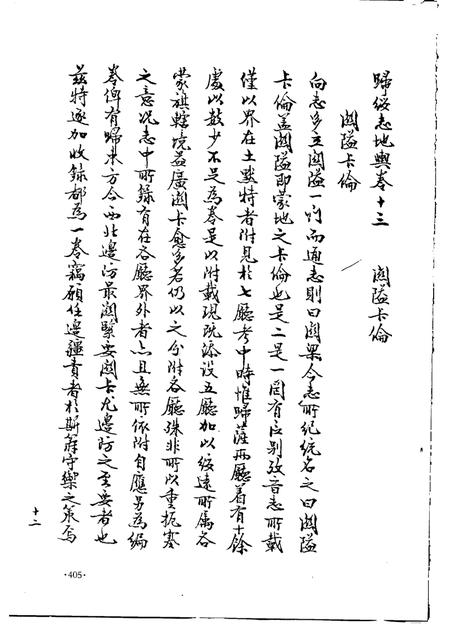 歸綏志地輿卷十三　關隘卡倫
關隘卡倫
向志多立關隘一門而通志則曰關梁今志所紀統名之曰關隘
卡倫蓋關隘即蒙地之卡倫也是二是一固有區別攷音志所載
僅以界在土默特者附見於七廳考中時惟歸薩兩廳着有十餘
處以數少不足為卷是以附載現既添設五廳加以綏遠所屬各
蒙旗轄境益廣關卡愈多若仍以之分附各廳殊非所以重扼塞
之意况志中所錄有在各廳界外者亦且無所依附自應另為編
卷俾有歸束方合西北邊防最關緊要關卡尤邊防之至要者也
茲特逐加收錄都為一卷竊願任邊疆責者於斯籌守禦之策焉
十二
·405·